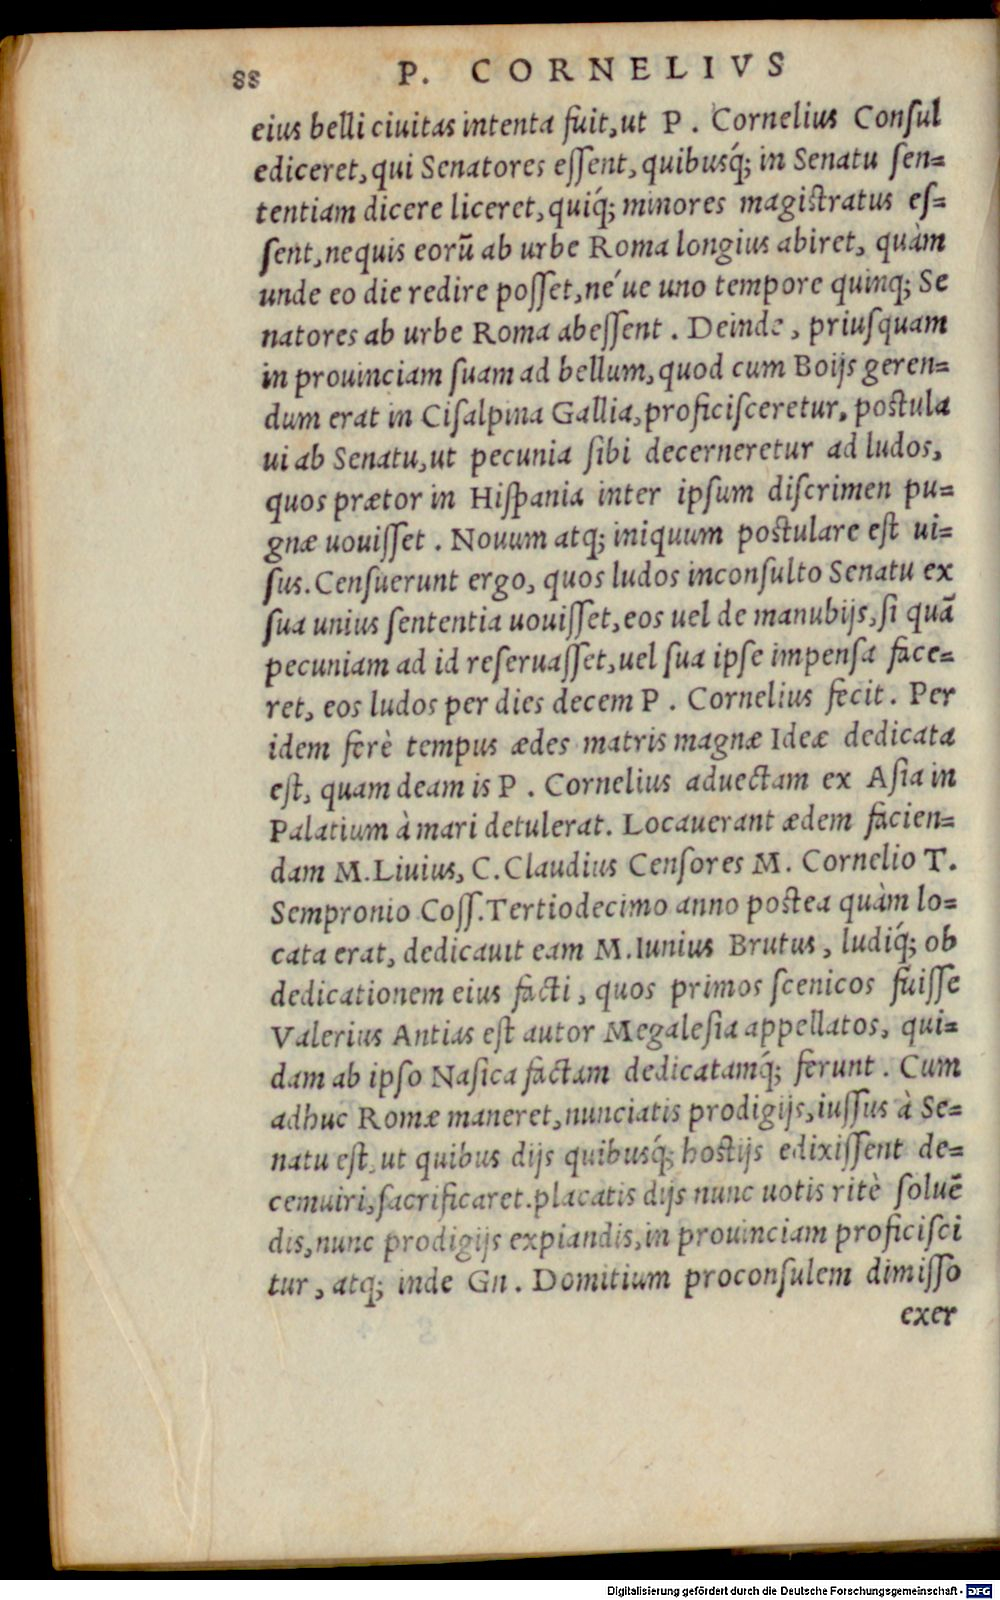 88 P. CORNELIVS
eius belli ciuitas intenta fuit, ut P. Cornelius Consul
ediceret, qui Senatores essent, quibusq́; in Senatu sen=
tentiam dicere liceret, quiq́; minores magistratus es=
sent, nequis eorũ ab urbe Roma longius abiret, quàm
unde eo die redire posset, né ue uno tempore quinq; Se
natores ab urbe Roma abessent. Deinde, priusquam
in prouinciam suam ad bellum, quod cum Boijs geren=
dum erat in Cisalpina Gallia, proficisceretur, postula
ui ab Senatu, ut pecunia sibi decerneretur ad ludos,
quos prætor in Hispania inter ipsum discrimen pu=
gnæ uouisset. Nouum atq; iniquum postulare est ui=
sus. Censuerunt ergo, quos ludos inconsulto Senatu ex
sua unius sententia uouisset, eos uel de manubijs, si quã
pecuniam ad id reseruasset, uel sua ipse impensa face=
ret, eos ludos per dies decem P. Cornelius fecit. Per
idem ferè tempus ædes matris magnæ Ideæ dedicata
est, quam deam is P. Cornelius aduectam ex Asia in
Palatium à mari detulerat. Locauerant ædem facien=
dam M. Liuius, C. Claudius Censores M. Cornelio T.
Sempronio Coss. Tertiodecimo anno postea quàm lo=
cata erat, dedicauit eam M. Iunius Brutus, ludiq́; ob
dedicationem eius facti, quos primos scenicos fuisse
Valerius Antias est autor Megalesia appellatos, qui=
dam ab ipso Nasica factam dedicatamq́; ferunt. Cum
adhuc Romæ maneret, nunciatis prodigijs, iussus à Se=
natu est, ut quibus dijs quibusq́; hostijs edixissent de=
cemuiri, sacrificaret. placatis dijs nunc uotis ritè soluẽ
dis, nunc prodigijs expiandis, in prouinciam proficisci
tur, atq; inde Gn. Domitium proconsulem dimisso
exer
Digitalisierung gefördert durch die Deutsche Forschungsgemeinschaft - DFG